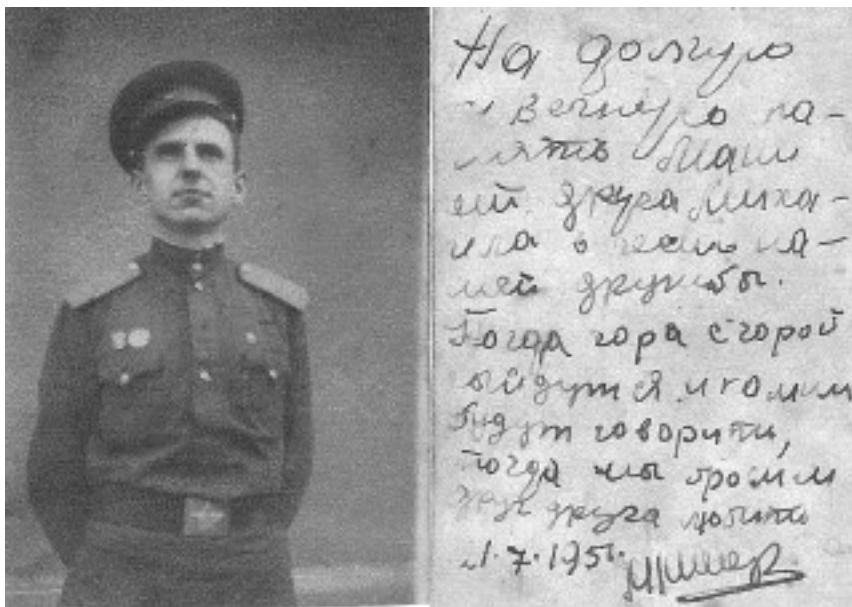 На долгую
и вечную па-
мять Маши
от друга Миха-
ила о
шей дружбы.
Когда гора с горой
сойдутся и
будут говорить,
тогда мы бросим
друг друга любить
1.7.195